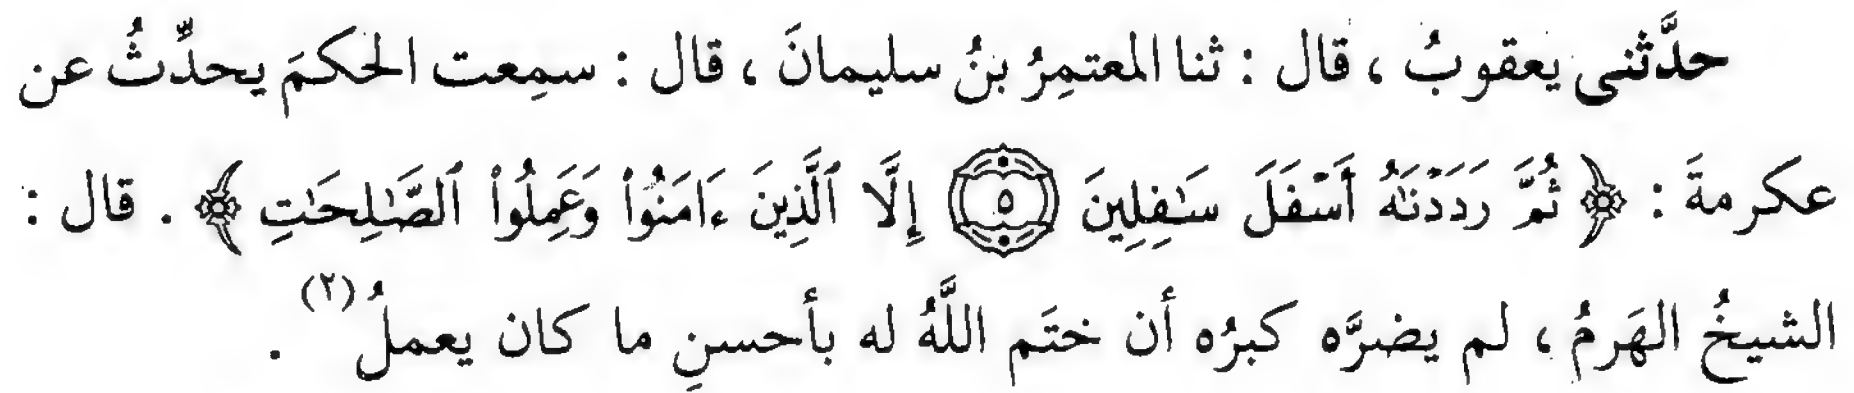 حدَّثنى يعقوبُ ، قال : ثنا المعتمِرُ بنُ سليمانَ ، قال : سمِعت الحكمَ يحدِّثُ عن
عكرمةَ : ﴿ ثُمَّ رَدَدْنَٰهُ أَسْفَلَ سَٰفِلِينَ ۝٥ إِلَّا ٱلَّذِينَ ءَامَنُوا۟ وَعَمِلُوا۟ ٱلصَّٰلِحَٰتِ ﴾ . قال :
الشيخُ الهَرِمُ ، لم يضرَّه كبرُه أن ختَم اللَّهُ له بأحسنِ ما كان يعملُ (٢) .